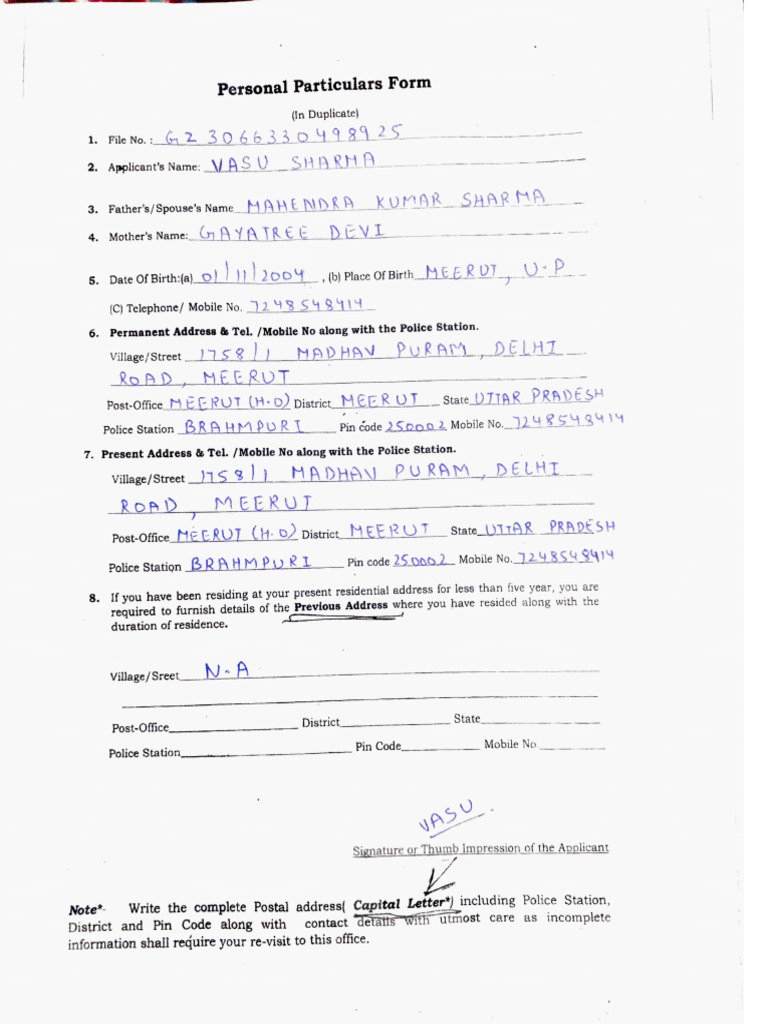 Personal Particulars Form
(In Duplicate)
1. File No. : GZ3066330498925
2. Applicant's Name: VASU SHARMA
3. Father's/Spouse's Name MAHENDRA KUMAR SHARMA
4. Mother's Name: GAYATREE DEVI
5. Date Of Birth:(a) 01/11/2004, (b) Place Of Birth MEERUT, U-P
(C) Telephone/ Mobile No. 7248548414
6. Permanent Address & Tel. /Mobile No along with the Police Station.
Village/Street 1758/1 MADHAV PURAM, DELHI
ROAD, MEERUT
Post-Office MEERUT (H.O) District MEERUT State UTTAR PRADESH
Police Station BRAHMPURI Pin code 250002 Mobile No. 7248548414
7. Present Address & Tel. /Mobile No along with the Police Station.
Village/Street 1758/1 MADHAV PURAM, DELHI
ROAD, MEERUT
Post-Office MEERUT (H.O) District MEERUT State UTTAR PRADESH
Police Station BRAHMPURI Pin code 250002 Mobile No. 7248548414
8. If you have been residing at your present residential address for less than five year, you are
required to furnish details of the Previous Address where you have resided along with the
duration of residence.
Village/Sreet N-A
Post-Office District State
Police Station Pin Code Mobile No.
VASU
Signature or Thumb Impression of the Applicant
Note*- Write the complete Postal address( Capital Letter*) including Police Station,
District and Pin Code along with contact details with utmost care as incomplete
information shall require your re-visit to this office.